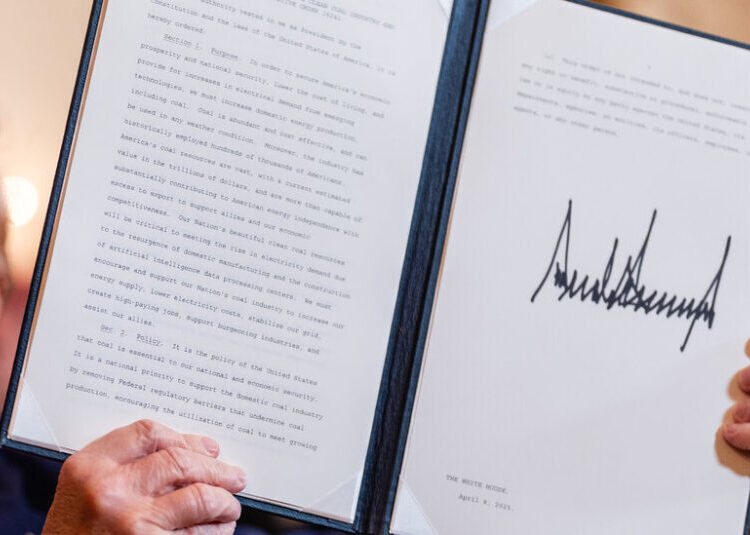 CLEAN COAL INDUSTRY AND
ORDER 14241
authority vested in me as President by the
Constitution and the laws of the United States of America, it is
hereby ordered:
Section 1. Purpose. In order to secure America's economic
prosperity and national security, lower the cost of living, and
provide for increases in electrical demand from emerging
technologies, we must increase domestic energy production,
including coal. Coal is abundant and cost effective, and can
be used in any weather condition. Moreover, the industry has
historically employed hundreds of thousands of Americans.
America's coal resources are vast, with a current estimated
value in the trillions of dollars, and are more than capable of
substantially contributing to American energy independence with
excess to export to support allies and our economic
competitiveness. Our Nation's beautiful clean coal resources
will be critical to meeting the rise in electricity demand due
to the resurgence of domestic manufacturing and the construction
of artificial intelligence data processing centers. We must
encourage and support our Nation's coal industry to increase our
energy supply, lower electricity costs, stabilize our grid,
create high-paying jobs, support burgeoning industries, and
assist our allies.
Sec. 2. Policy. It is the policy of the United States
that coal is essential to our national and economic security.
It is a national priority to support the domestic coal industry
by removing Federal regulatory barriers that undermine coal
production, encouraging the utilization of coal to meet growing
(c) This order is not intended to, and does not, create
any right or benefit, substantive or procedural, enforceable
law or in equity by any party against the United States, its
departments, agencies, or entities, its officers, employees,
agents, or any other person.
THE WHITE HOUSE,
April 8, 2025.